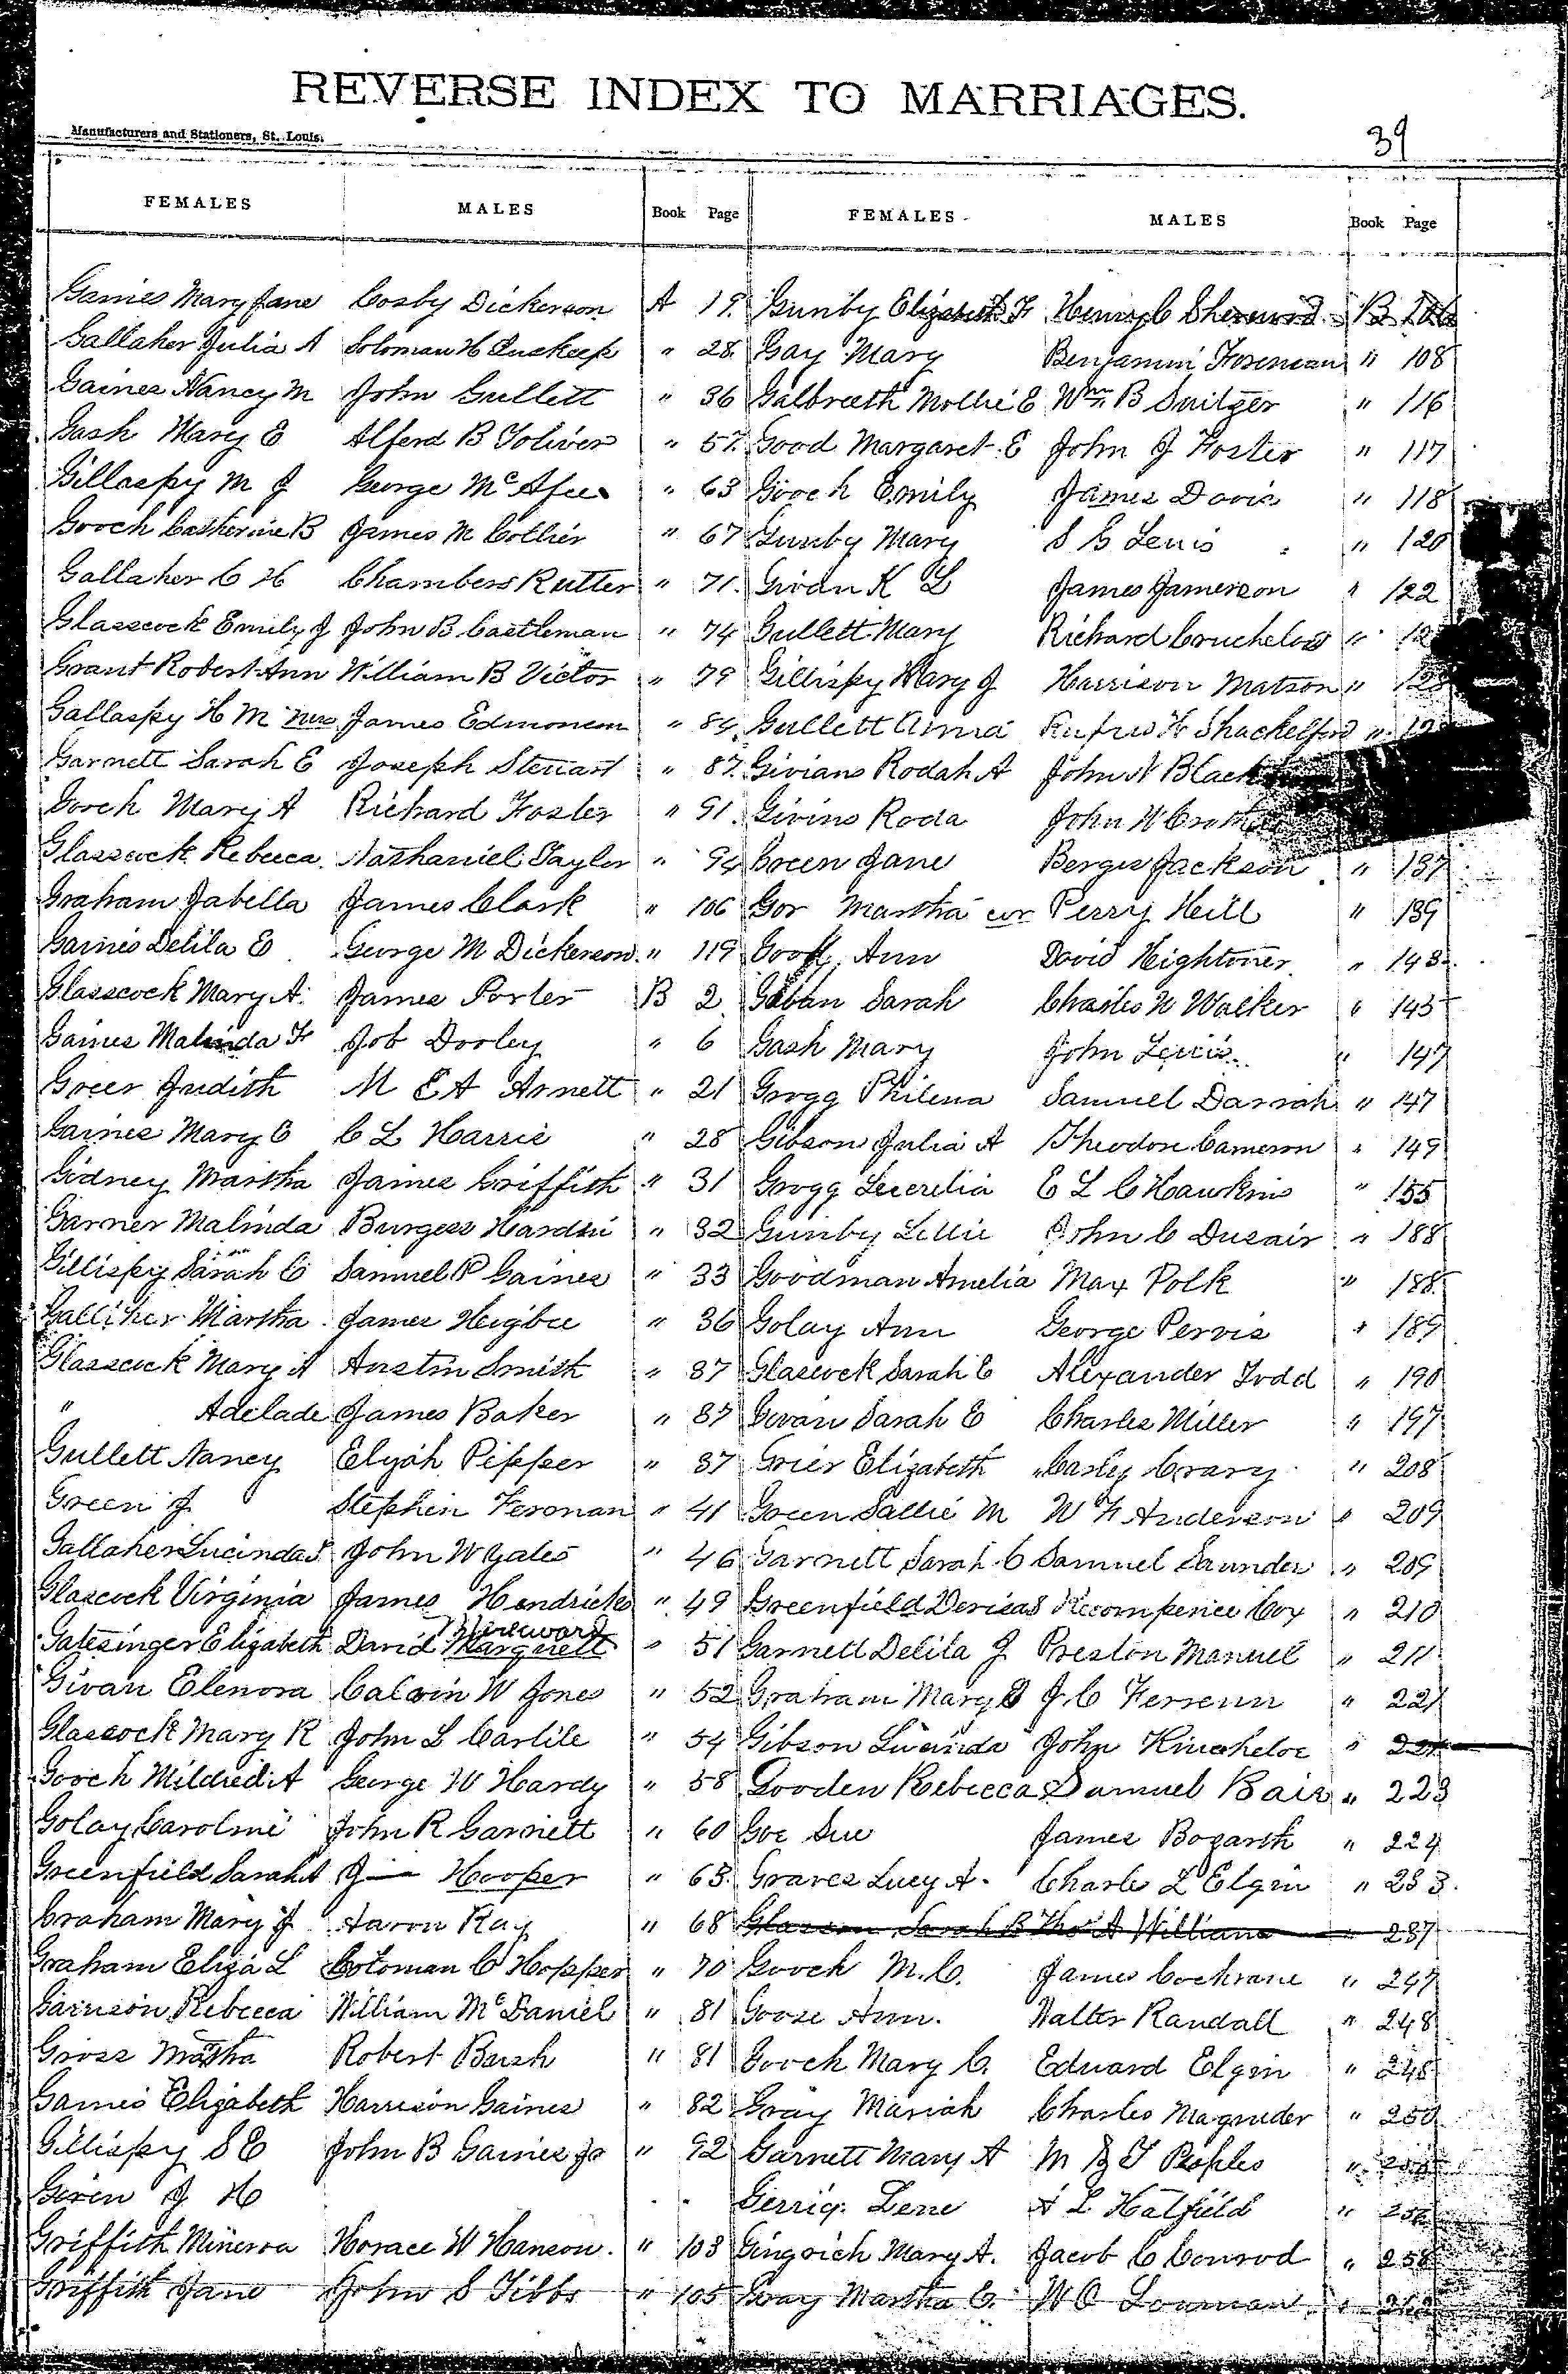 REVERSE INDEX TO MARRIAGES.
39
Manufacturers and Stationers, St. Louis.
FEMALES MALES Book Page FEMALES MALES Book Page
Gaines Mary Jane Cosby Dickerson A 19
Gallaher Julia A Soloman H Inskeep " 28
Gaines Nancy M John Gullett " 36
Gash Mary E Alferd B Toliver " 57
Gillaspy M J George McAfee " 63
Gooch Catherine B James M Collier " 67
Gallaher C H Chambers Rutter " 71
Glasscock Emily J John B Castleman " 74
Grant Robert Ann William B Victor " 79
Gallaspy H M mrs James Edmonson " 84
Garnett Sarah E Joseph Stewart " 87
Gooch Mary A Richard Foster " 91
Glasscock Rebecca Nathaniel Taylor " 94
Graham Jabella James Clark " 106
Gaines Delila E George M Dickerson " 119
Glasscock Mary A. James Porter B 2
Gaines Malinda F Job Dooley " 6
Greer Judith M E A Arnett " 21
Gaines Mary C C L Harris " 28
Gidney Martha James Griffith " 31
Garner Malinda Burgess Hardin " 32
Gillispy Sarah C Samuel P Gaines " 33
Galliher Martha James Higbee " 36
Glasscock Mary A Austin Smith " 37
" Adelade James Baker " 37
Gullett Nancy Elijah Pepper " 37
Green J Stephen Feronan " 41
Gallaher Lucinda S John W Yates " 46
Glascock Virginia James Hendricks " 49
Gatesinger Elizabeth David Marquett " 51
Givan Elenora Calvin W Jones " 52
Glascock Mary R John L Carlile " 54
Gooch Mildred A George W Hardy " 58
Golay Caroline John R Garnett " 60
Greenfield Sarah A J— Hooper " 63
Graham Mary J Aaron Ray " 68
Graham Eliza L Coloman C Hopper " 70
Garrison Rebecca William McDaniel " 81
Gross Martha Robert Bush " 81
Gaines Elizabeth Harrison Gaines " 82
Gillispy S E John B Gaines Jr " 92
Given J H
Griffith Minerva Horace W Hanson " 103
Griffith Jane John S Tibbs " 105
Gunby Elizabeth F Henry C Sherwood B
Gay Mary Benjamin Foreman " 108
Galbreath Mollie E Wm B Switzer " 116
Good Margaret E John J Foster " 117
Gooch Emily James Davis " 118
Gunby Mary S G Lewis " 120
Givan K L James Jamerson " 122
Gullett Mary Richard Cruchelow "
Gillispy Mary J Harrison Matson " 128
Gullett Anna Rufus F Shackelford "
Givians Rodah A John N Black
Givins Roda John N
Green Jane Berges Jackson " 137
Gor Martha Perry Hill " 139
Ann David Hightower " 143
Sarah Charles N Walker " 145
Gash Mary John Lewis " 147
Grogg Philena Samuel Darrah " 147
Gibson Julia A Theodore Cameron " 149
Grogg Lucretia E L C Hawkins " 155
Gunby Lillie John C Dusair " 188
Goodman Amelia Max Polk " 188
Golay Ann George Pervis " 189
Glascock Sarah E Alexander Todd " 190
Givan Sarah E Charles Miller " 197
Grier Elizabeth Crary " 208
Green Sallie M W F Anderson " 209
Garnett Sarah C Samuel Saunder " 209
Greenfield Recompence Cox " 210
Garnett Delila J Preston Manuel " 211
Graham Mary J C " 221
Gibson Lucinda John Kincheloe "
Gooden Rebecca Samuel Bair " 223
Goe Sue James Bogarth " 224
Graves Lucy A. Charles L Elgin " 233
Sarah B Thos A Williams 237
Gooch M. C. James Cochrane " 247
Goose Ann. Walter Randall " 248
Gooch Mary C. Edward Elgin " 248
Gray Mariah Charles Magruder " 250
Garnett Mary A M B T Peoples "
Gerrig Lene A L Hatfield "
Gingrich Mary A. Jacob C Conrod " 258
Gray Martha C. W O Louman "